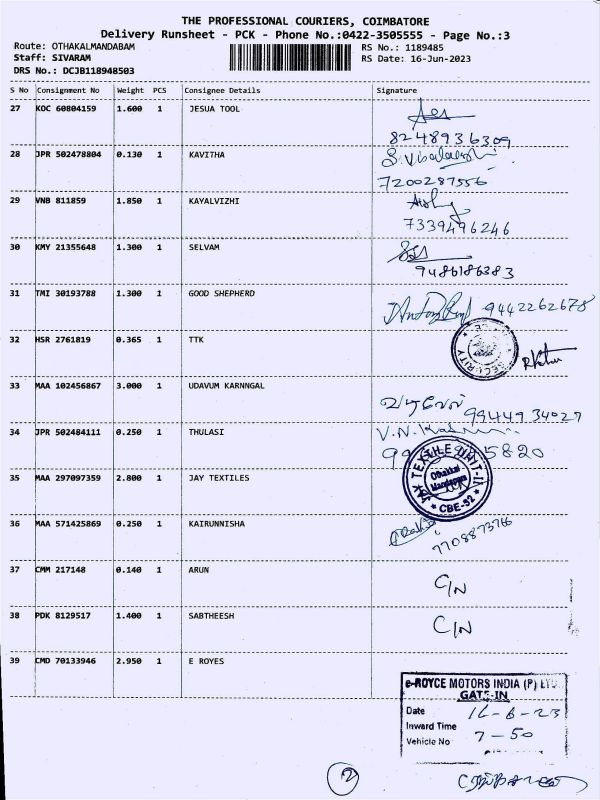 THE PROFESSIONAL COURIERS, COIMBATORE
Delivery Runsheet - PCK - Phone No.:0422-3505555 - Page No.:3
Route: OTHAKALMANDABAM RS No.: 1189485
Staff: SIVARAM RS Date: 16-Jun-2023
DRS No.: DCJB118948503
S No Consignment No Weight PCS Consignee Details Signature
27 KOC 60804159 1.600 1 JESUA TOOL
8248936309
28 JPR 502478804 0.130 1 KAVITHA
7200287556
29 VNB 811859 1.850 1 KAYALVIZHI
7339496246
30 KMY 21355648 1.300 1 SELVAM
9486186383
31 TMI 30193788 1.300 1 GOOD SHEPHERD
9442262678
32 HSR 2761819 0.365 1 TTK
SECURITY
33 MAA 102456867 3.000 1 UDAVUM KARNNGAL
வடிவேல் 9944934027
34 JPR 502484111 0.250 1 THULASI
V.N.
5820
35 MAA 297097359 2.800 1 JAY TEXTILES
JAY TEXTILE UNIT-II
Othakkal
Mandapam
CBE-32
36 MAA 571425869 0.250 1 KAIRUNNISHA
7708873766
37 CMM 217148 0.140 1 ARUN
C/N
38 PDK 8129517 1.400 1 SABTHEESH
C/N
39 CMD 70133946 2.950 1 E ROYES
e-ROYCE MOTORS INDIA (P) LTD.
GATE-IN
Date 16-6-23
Inward Time 7-50
Vehicle No
2